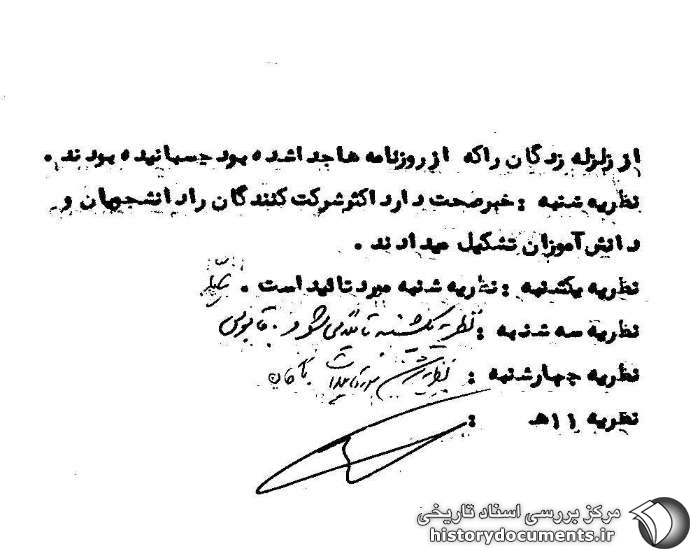 از زلزله زدگان راکه از روزنامه ها جدا شده بود چسبانیده بودند .
نظریه شنبه : خبر صحت دارد اکثر شرکت کنندگان را دانشجویان و
دانش آموزان تشکیل میدادند .
نظریه یکشنبه : نظریه شنبه مورد تائید است .
نظریه سه شنبه : نظریه یکشنبه تائید می شود . قابوس
نظریه چهارشنبه :
نظریه ۱۱ هـ :
مرکز بررسی اسناد تاریخی
historydocuments.ir